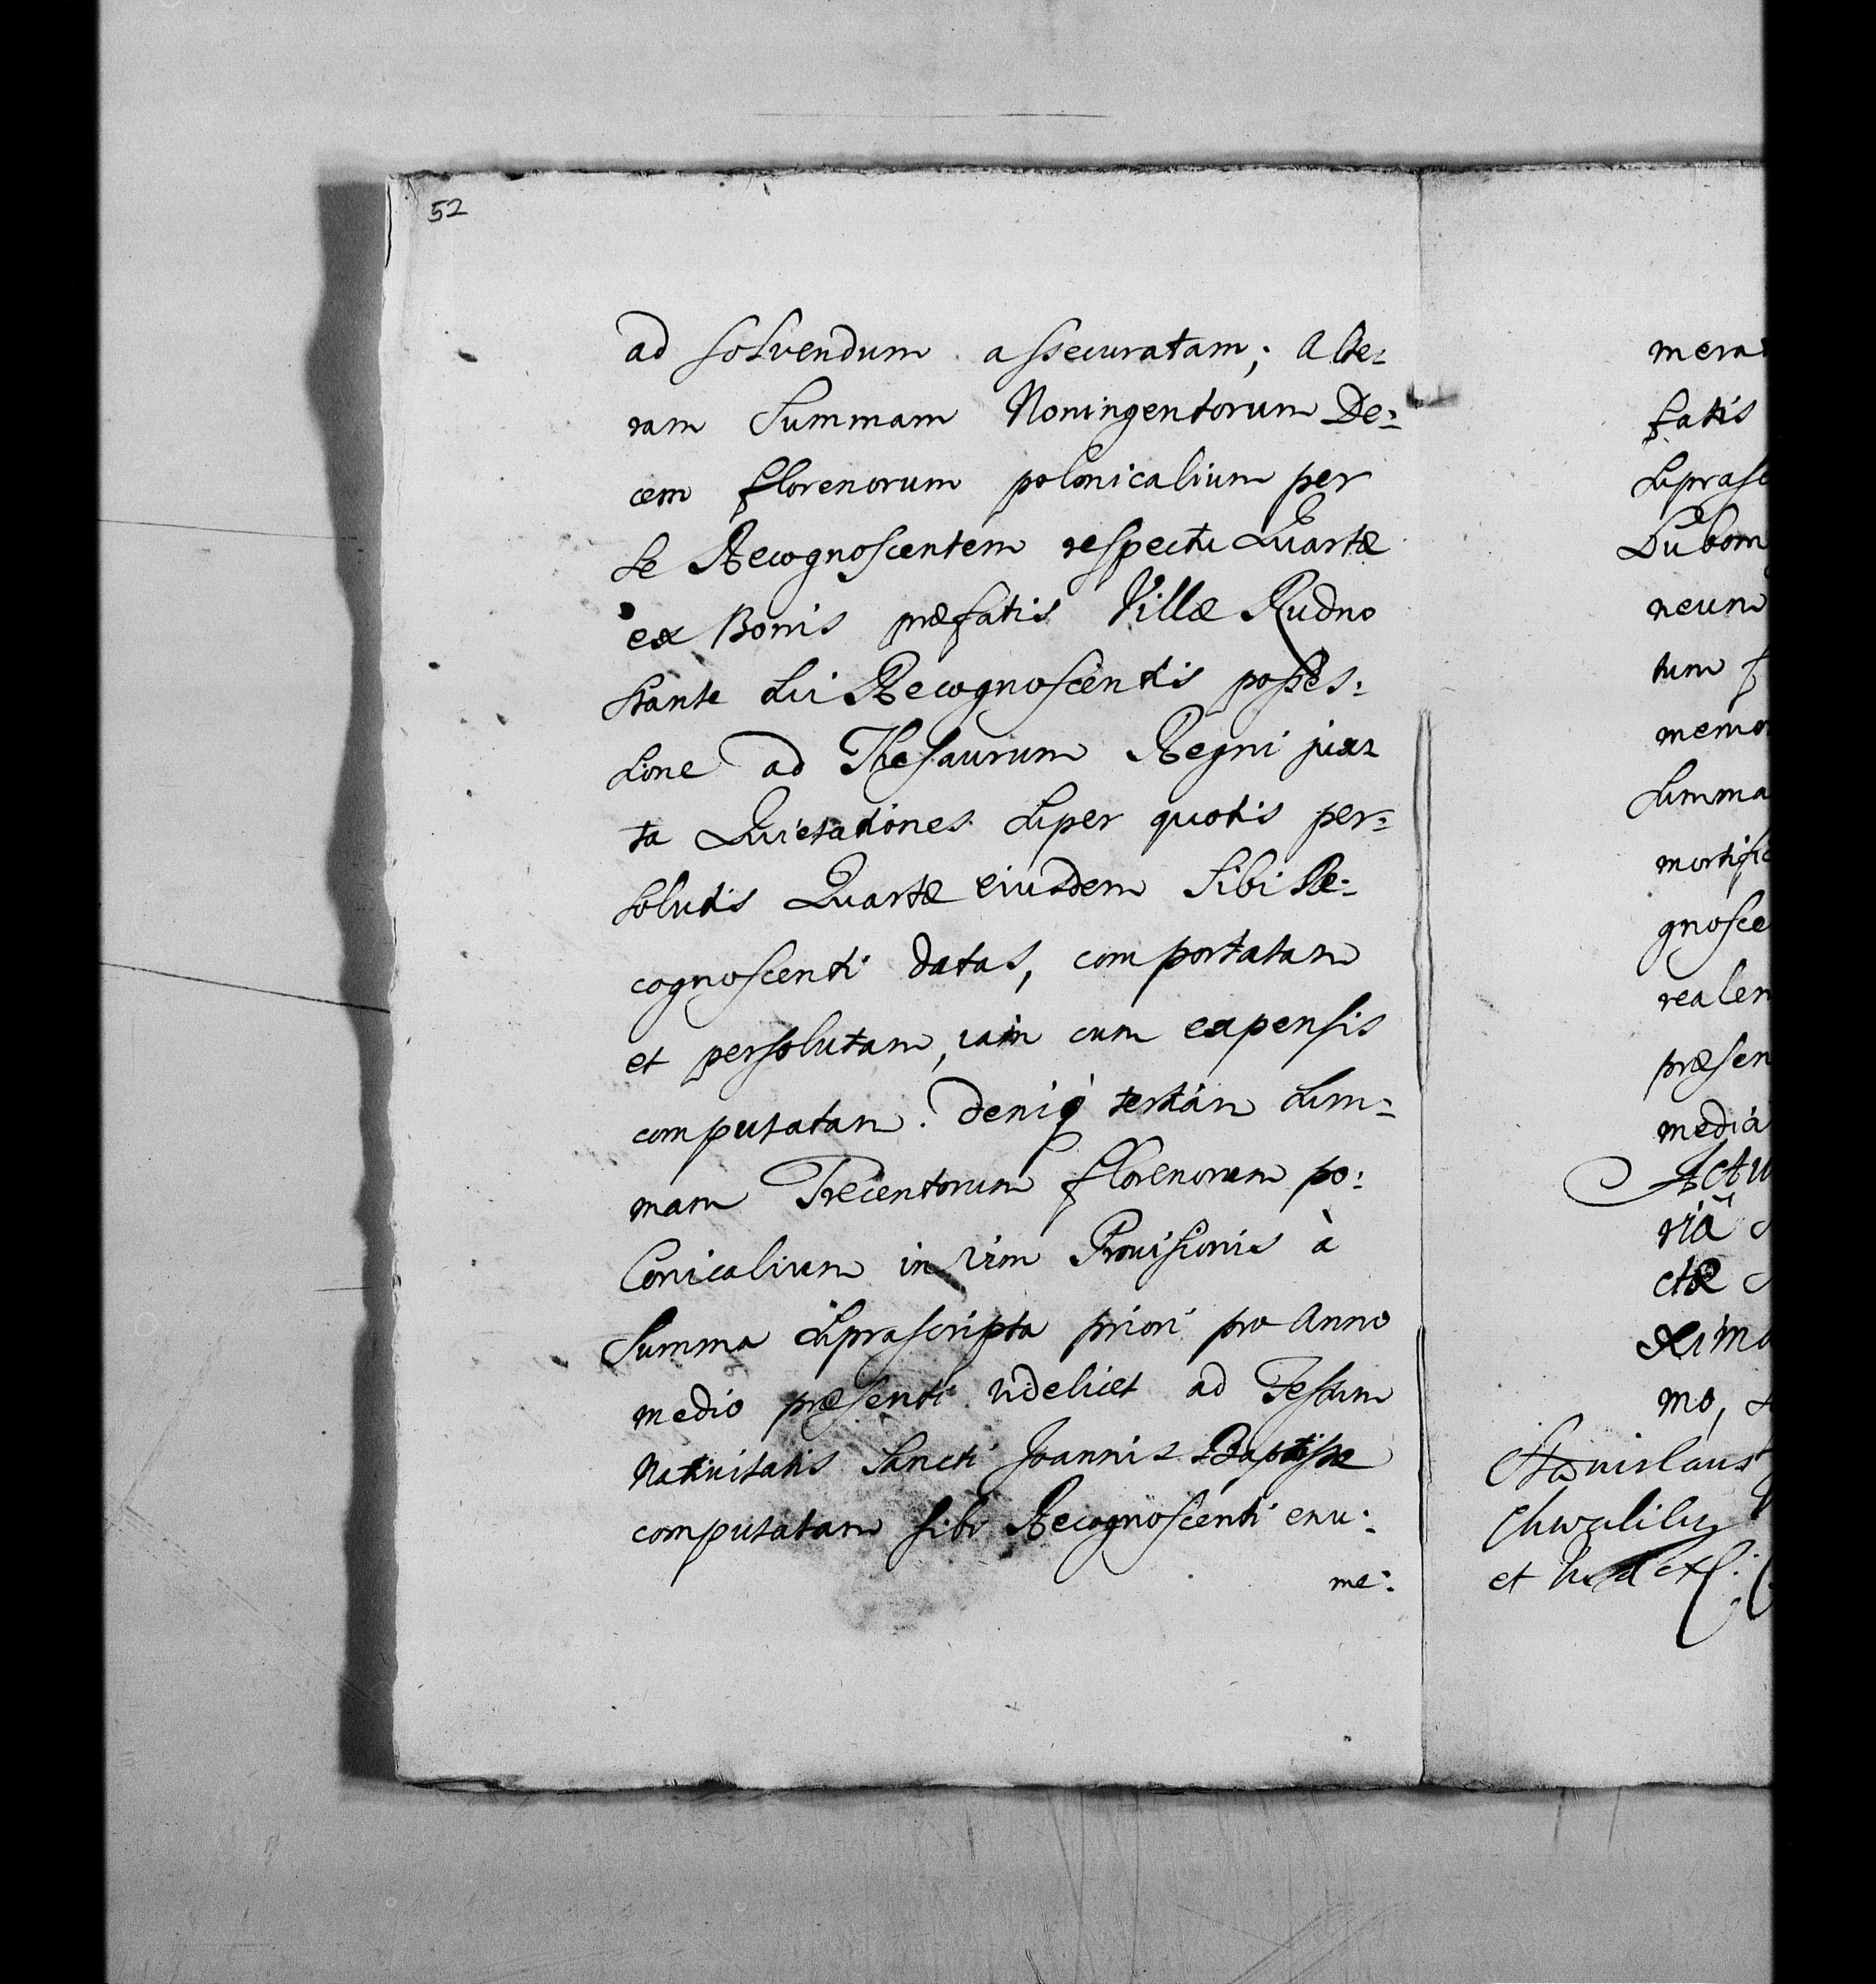 52
ad solvendum assecuratam; Alte:
ram Summam Noningentorum De:
cem florenorum polonicalium per
se Recognoscentem respectu Quartæ
ex Bonis præfatis Villæ Rudno
stante sui Recognoscentis posses:
sione ad Thesaurum Regni jux:
ta Quietationes super quotis per:
solutis Quartæ eiusdem sibi Re:
cognoscenti datas, comportatam
et persolutam, iam cum expensis
computatam. Deniq tertiam Sum:
mam Trecentorum florenorum po:
lonicalium in vim Provisionis à
Summa suprascripta priori pro Anno
medio præsenti videlicet ad Festum
Nativitatis Sancti Joannis Baptistæ
computatam sibi Recognoscenti enu:
me:
mera
fatis
suprasc
Lubom
neum
tum f
memo
summa
mortific
gnosce
realem
præsen
media
Actu
ria
ctæ
ximo
mo,
Stanislaus
et